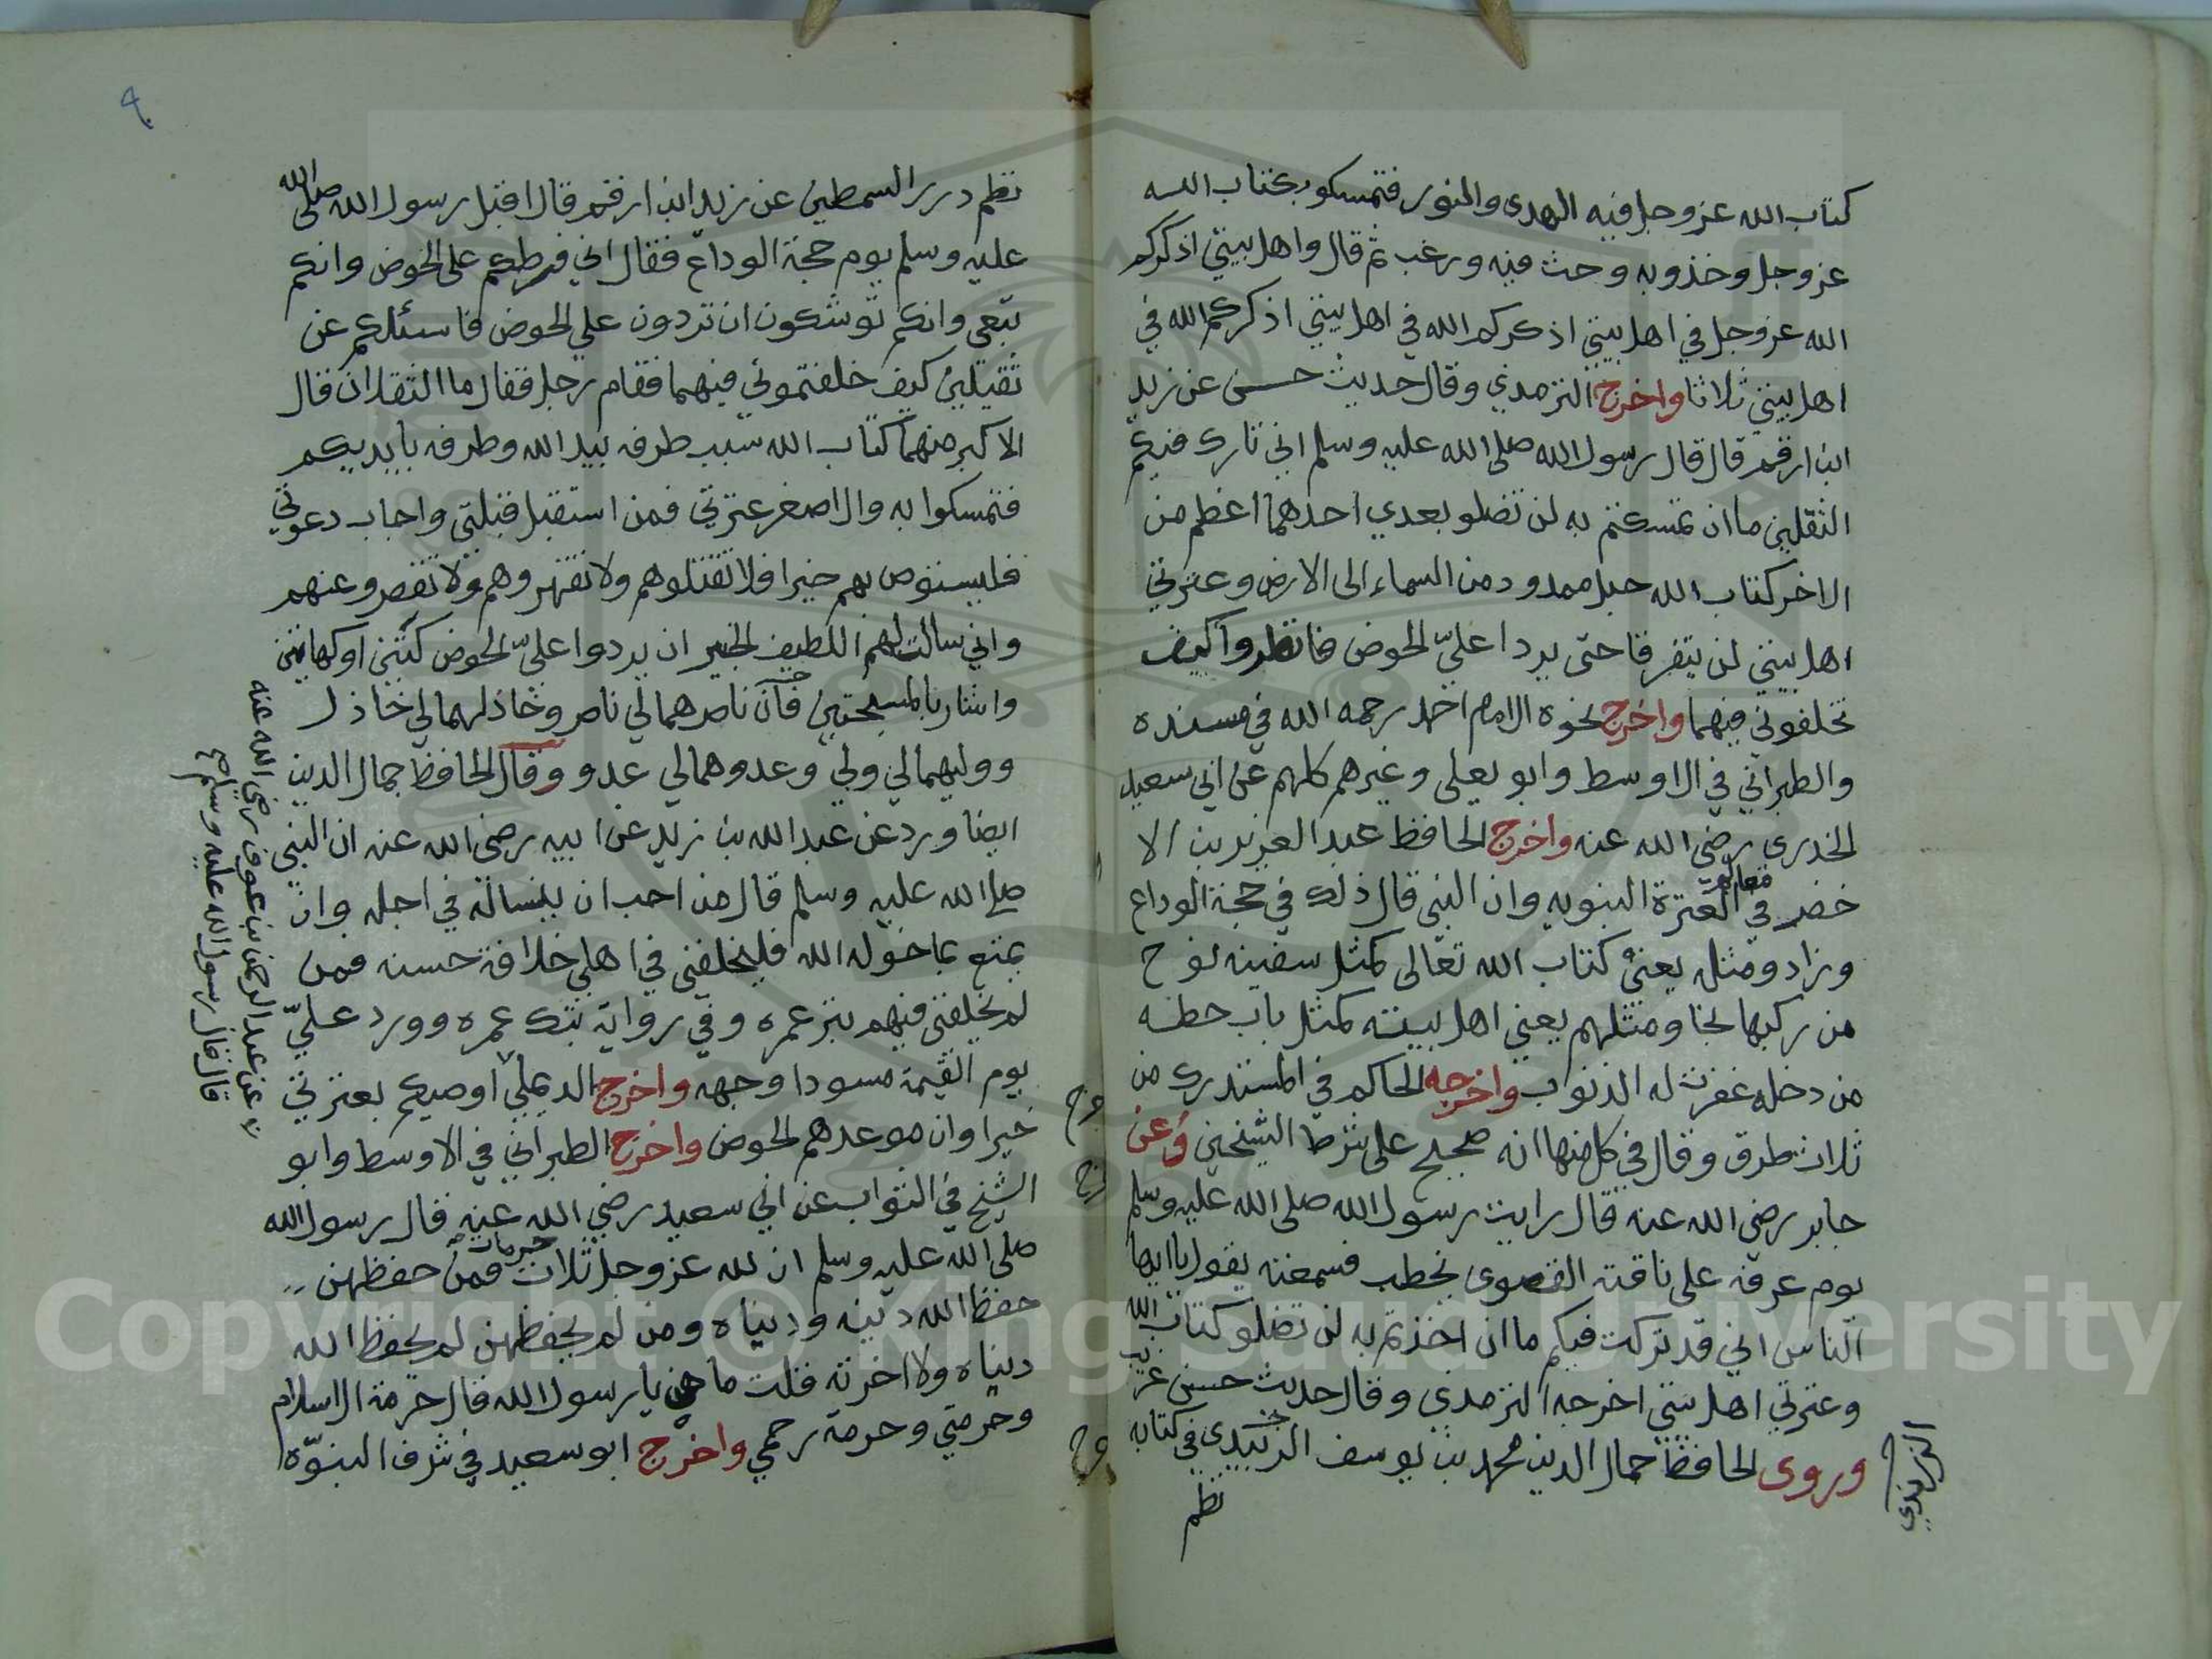 كتاب الله عز وجل فيه الهدى والنور فتمسكو بكتاب الله
عز وجل وخذو به وحث فيه ورغب ثم قال واهل بيتي اذكركم
الله عز وجل في اهل بيتي اذكركم الله في اهل بيتي اذكركم الله في
اهل بيتي ثلاثا واخرج الترمذي وقال حديث حسن عن زيد
ابن ارقم قال قال رسول الله صلى الله عليه وسلم اني تارك فيكم
الثقلين ما ان تمسكتم به لن تضلو بعدي احدهما اعظم من
الاخر كتاب الله حبل ممدود من السماء الى الارض وعترتي
اهل بيتي لن يتفرقا حتى يردا عليّ الحوض فانظروا كيف
تخلفوني فيهما واخرج نحوه الامام احمد رحمه الله في مسنده
والطبراني في الاوسط وابو يعلى وغيرهم كلهم عن ابي سعيد
الخدري رضي الله عنه واخرج الحافظ عبد العزيز بن الا
خضر في معالم العترة النبويه وان النبي قال ذلك في حجة الوداع
وزاد ومثله يعني كتاب الله تعالى كمثل سفينه نوح
من ركبها نجا ومثلهم يعني اهل بيته كمثل باب حطه
من دخله غفرت له الذنوب واخرجه الحاكم في المستدرك من
ثلاث طرق وقال في كل منها انه صحيح على شرط الشيخين وعن
جابر رضي الله عنه قال رايت رسول الله صلى الله عليه وسلم
يوم عرفه على ناقته القصوى يخطب فسمعته يقول يا ايها
الناس اني قد تركت فيكم ما ان اخذتم به لن تضلو كتاب الله
وعترتي اهل بيتي اخرجه الترمذي وقال حديث حسن غريب
وروى الحافظ جمال الدين محمد بن يوسف الزبيدي في كتابه
الزرندي
نظم
نظم درر السمطين عن زيد ابن ارقم قال اقبل رسول الله صلى الله
عليه وسلم يوم حجة الوداع فقال اني فرطكم على الحوض وانكم
تبعي وانكم توشكون ان تردون علي الحوض فاسئلكم عن
ثقيلين كيف خلفتموني فيهما فقام رجل فقال ما الثقلان قال
الاكبر منهما كتاب الله سبب طرفه بيد الله وطرفه بايديكم
فتمسكوا به والاصغر عترتي فمن استقبل قبلتي واجاب دعوتي
فليستوص بهم خيرا فلا تقتلوهم ولا تقهروهم ولا تقصروعنهم
واني سالت لهم اللطيف الخبير ان يردوا عليّ الحوض كتين اوكهاتين
واشار بالمسبحتين فان ناصرهما لي ناصر وخاذلهما لي خاذل
ووليهما لي ولي وعدوهما لي عدو وقال الحافظ جمال الدين
ايضا ورد عن عبد الله بن زيد عن ابيه رضي الله عنه ان النبي
صلى الله عليه وسلم قال من احب ان ينسا له في اجله وان
يمتع بما خوله الله فليخلفني في اهلي خلافة حسنه فمن
لم يخلفني فيهم بتر عمره وفي رواية بتك عمره وورد عليّ
يوم القيمة مسودا وجهه واخرج الديملي اوصيكم بعترتي
خيرا وان موعدهم الحوض واخرج الطبراني في الاوسط وابو
الشيخ في الثواب عن ابي سعيد رضي الله عنه قال رسول الله
صلى الله عليه وسلم ان لله عز وجل ثلاث حرمات فمن حفظهن
حفظ الله دينه ودنياه ومن لم يحفظهن لم يحفظ الله
دنياه ولا اخرته قلت ما هن يا رسول الله قال حرمة الاسلام
وحرمتي وحرمة رحمي واخرج ابو سعيد في شرف النبوّه
عن عبد الرحمن بن عوف رضي الله عنه
قال قال رسول الله عليه وسلم صح
Copyright © King Saud University